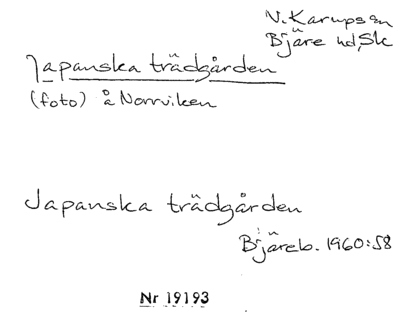 V. Karups sn
Bjäre hd, Sk
Japanska trädgården
(foto) å Norrviken
Japanska trädgården
Bjäreb. 1960:58
Nr 19193